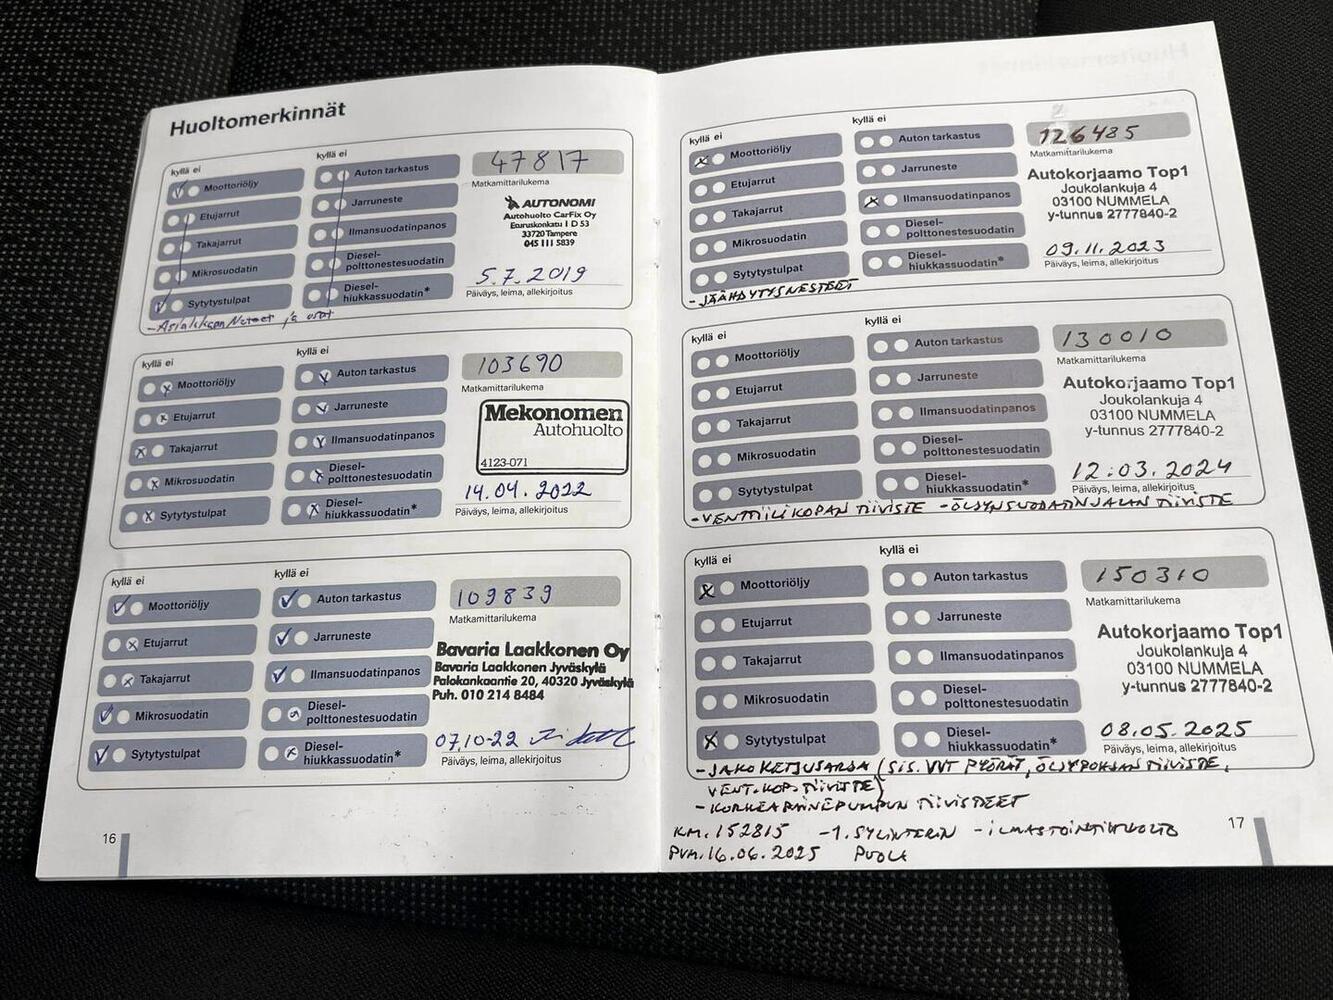 Huoltomerkinnät
kyllä ei
kyllä ei
Moottoriöljy
Etujarrut
Takajarrut
Mikrosuodatin
Sytytystulpat
Auton tarkastus
Jarruneste
Ilmansuodatinpanos
Diesel-
polttonestesuodatin
Diesel-
hiukkassuodatin*
47817
Matkamittarilukema
AUTONOMI
Autohuolto CarFix Oy
Eturuskonkatu 1 D 53
33720 Tampere
045 111 5839
5.7.2019
Päiväys, leima, allekirjoitus
- Asiakkaan Nesteet ja osat
kyllä ei
kyllä ei
Moottoriöljy
Etujarrut
Takajarrut
Mikrosuodatin
Sytytystulpat
Auton tarkastus
Jarruneste
Ilmansuodatinpanos
Diesel-
polttonestesuodatin
Diesel-
hiukkassuodatin*
103690
Matkamittarilukema
Mekonomen
Autohuolto
4123-071
14.04.2022
Päiväys, leima, allekirjoitus
kyllä ei
kyllä ei
Moottoriöljy
Etujarrut
Takajarrut
Mikrosuodatin
Sytytystulpat
Auton tarkastus
Jarruneste
Ilmansuodatinpanos
Diesel-
polttonestesuodatin
Diesel-
hiukkassuodatin*
109839
Matkamittarilukema
Bavaria Laakkonen Oy
Bavaria Laakkonen Jyväskylä
Palokankaantie 20, 40320 Jyväskylä
Puh. 010 214 8484
07.10-22
Päiväys, leima, allekirjoitus
16
kyllä ei
kyllä ei
Moottoriöljy
Etujarrut
Takajarrut
Mikrosuodatin
Sytytystulpat
Auton tarkastus
Jarruneste
Ilmansuodatinpanos
Diesel-
polttonestesuodatin
Diesel-
hiukkassuodatin*
126485
Matkamittarilukema
Autokorjaamo Top1
Joukolankuja 4
03100 NUMMELA
y-tunnus 2777840-2
09.11.2023
Päiväys, leima, allekirjoitus
- JÄÄHDYTYSNESTEET
kyllä ei
kyllä ei
Moottoriöljy
Etujarrut
Takajarrut
Mikrosuodatin
Sytytystulpat
Auton tarkastus
Jarruneste
Ilmansuodatinpanos
Diesel-
polttonestesuodatin
Diesel-
hiukkassuodatin*
130010
Matkamittarilukema
Autokorjaamo Top1
Joukolankuja 4
03100 NUMMELA
y-tunnus 2777840-2
12.03.2024
Päiväys, leima, allekirjoitus
- VENTTIILIKOPAN TIIVISTE - ÖLJYNSUODATINJALAN TIIVISTE
kyllä ei
kyllä ei
Moottoriöljy
Etujarrut
Takajarrut
Mikrosuodatin
Sytytystulpat
Auton tarkastus
Jarruneste
Ilmansuodatinpanos
Diesel-
polttonestesuodatin
Diesel-
hiukkassuodatin*
150310
Matkamittarilukema
Autokorjaamo Top1
Joukolankuja 4
03100 NUMMELA
y-tunnus 2777840-2
08.05.2025
Päiväys, leima, allekirjoitus
- JAKOKETJUSARJA (SIS. VVT PYÖRÄT, ÖLJYPOHJAN TIIVISTE,
VENT.KOP. TIIVISTE)
- KORKEAPAINEPUMPUN TIIVISTEET
KM. 152815 - 1. SYLINTERIN - ILMASTOINTIHUOLTO
PVM. 16.06.2025 PUOLA
17